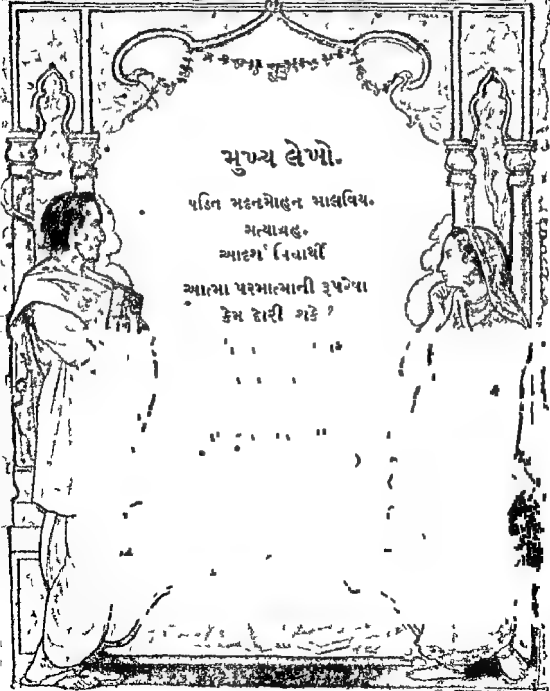 મુખ્ય લેખો.
પંડિત મદનમોહન માલવિય.
સત્યાગ્રહ.
આદર્શ વિદ્યાર્થી
આત્મા પરમાત્માની રૂપરેખા
કેમ દોરી શકે ?